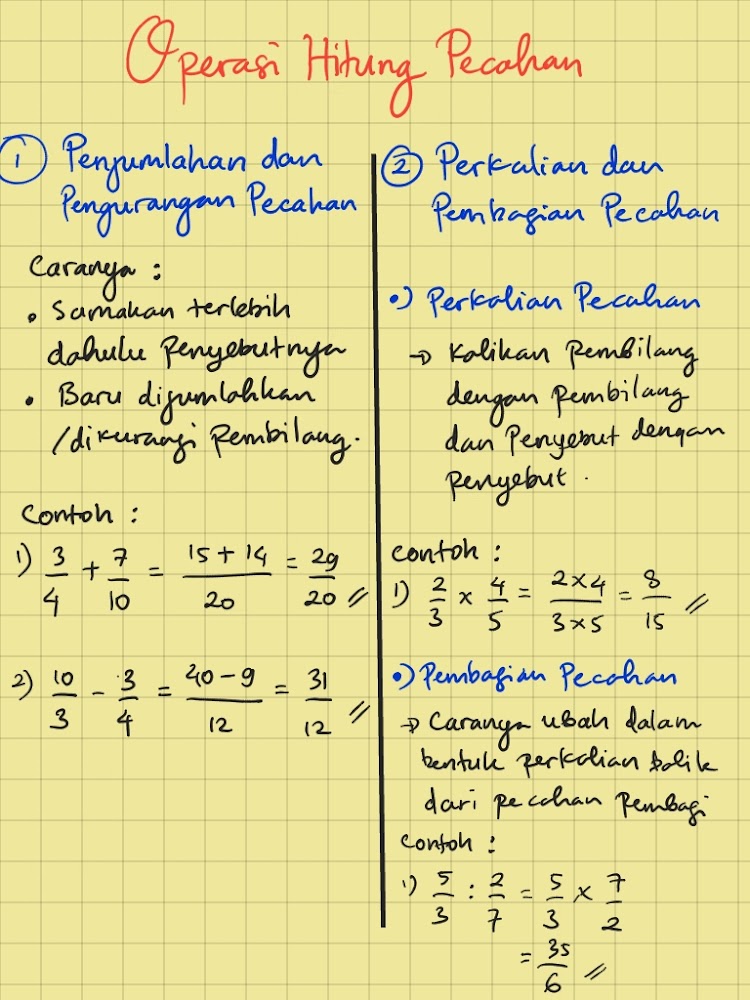 Operasi Hitung Pecahan
1 Penjumlahan dan
Pengurangan Pecahan
Caranya :
• Samakan terlebih
dahulu Penyebutnya
• Baru dijumlahkan
/dikurangi Pembilang.
Contoh :
1) 3/4 + 7/10 = (15 + 14)/20 = 29/20 //
2) 10/3 - 3/4 = (40 - 9)/12 = 31/12 //
2 Perkalian dan
Pembagian Pecahan
•) Perkalian Pecahan
→ Kalikan Pembilang
dengan Pembilang
dan Penyebut dengan
Penyebut.
Contoh :
1) 2/3 x 4/5 = (2x4)/(3x5) = 8/15 //
•) Pembagian Pecahan
→ Caranya ubah dalam
bentuk perkalian balik
dari pecahan Pembagi
Contoh :
1) 5/3 : 2/7 = 5/3 x 7/2
= 35/6 //